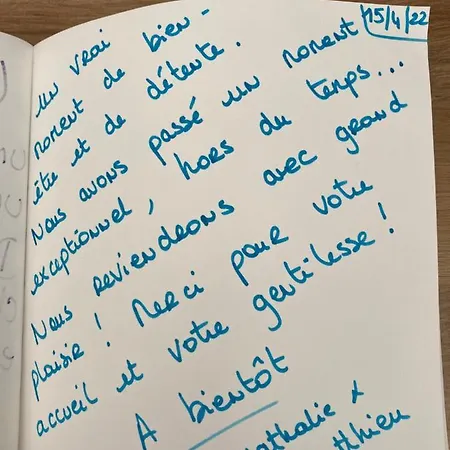 15/4/22
Un vrai
moment de bien-
être et de détente.
Nous avons passé un moment
exceptionnel, hors du temps...
Nous reviendrons avec grand
plaisir ! Merci pour votre
accueil et votre gentillesse !
A bientôt
Nathalie &